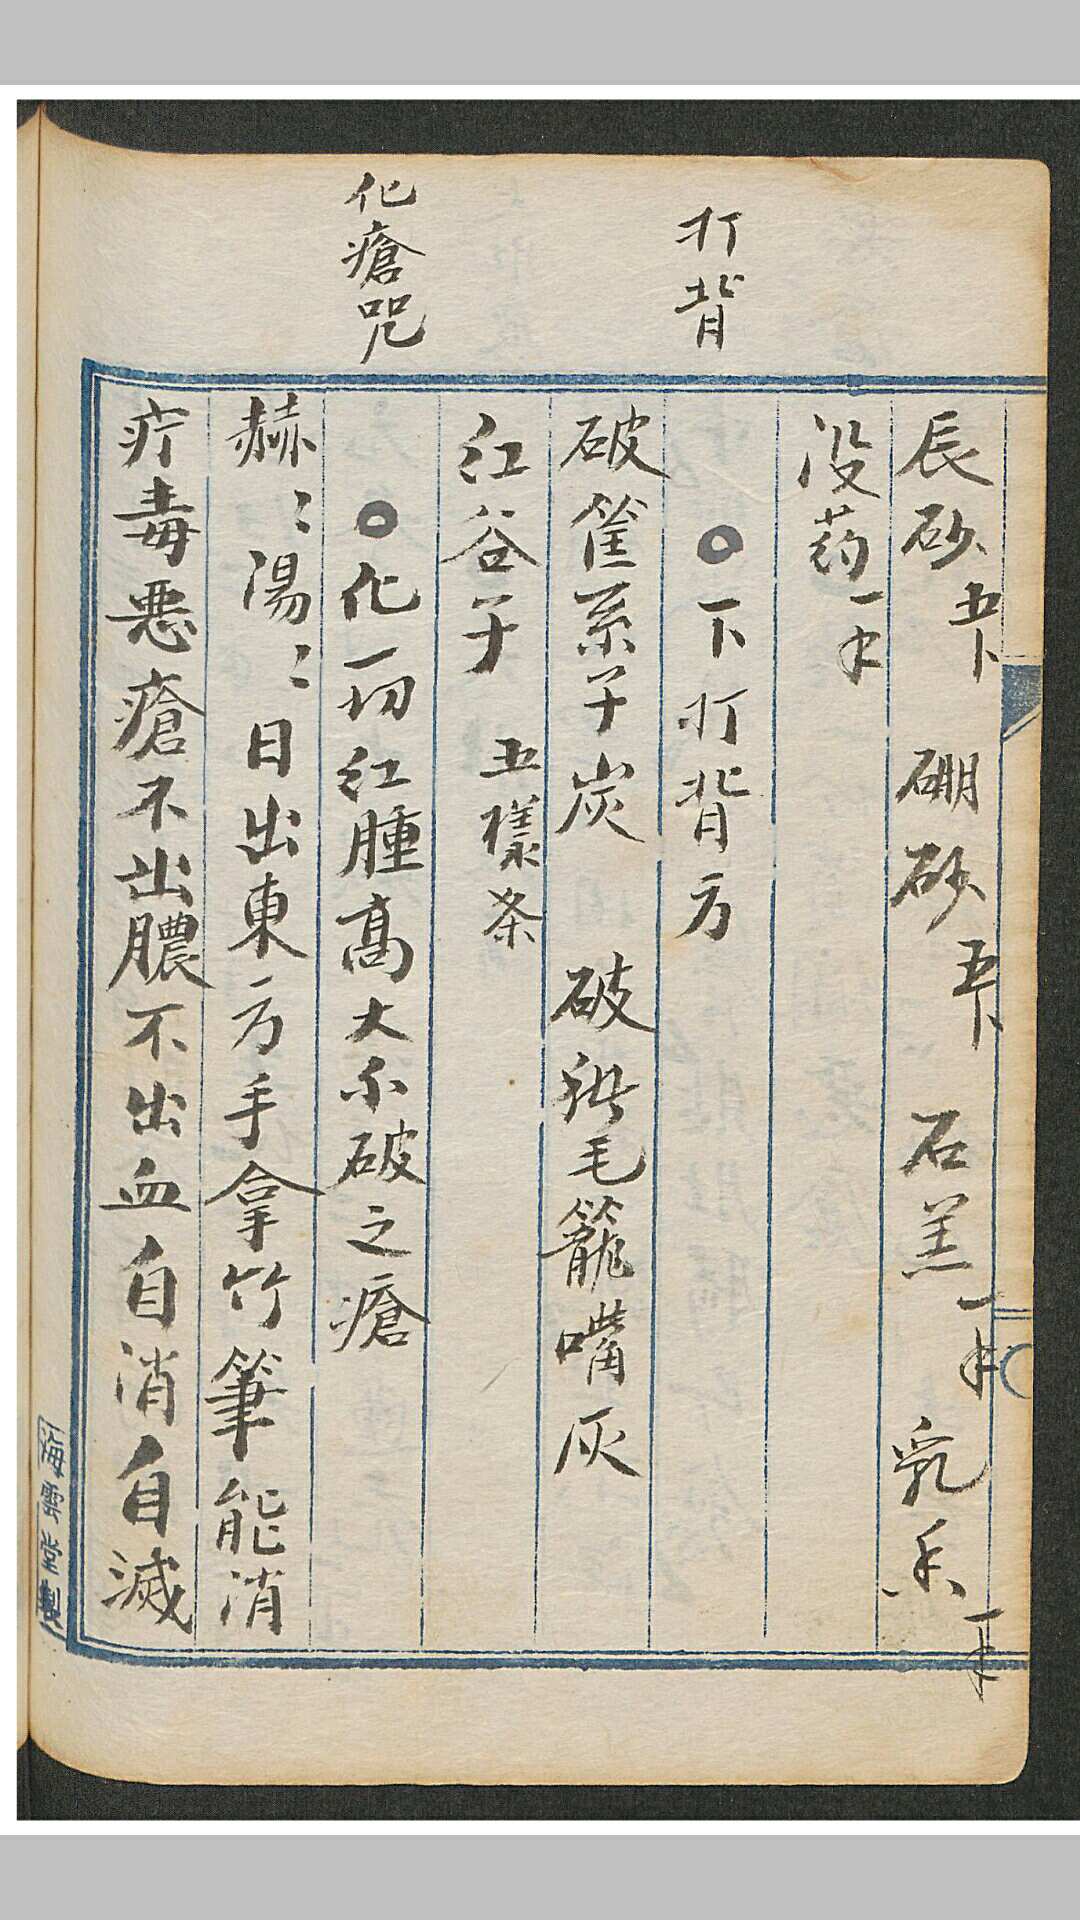 辰砂五卜 硼砂五卜 石羔一千 乳香一千
没药一千
打背
○下打背方
破篚系子炭 破 毛籠嘴灰
红谷子 五樣条
化瘡咒
○化一切红腫高大不破之瘡
赫〻湯〻日出東方手拿竹筆能消
疔毒惡瘡不出膿不出血自消自滅
海雲堂製